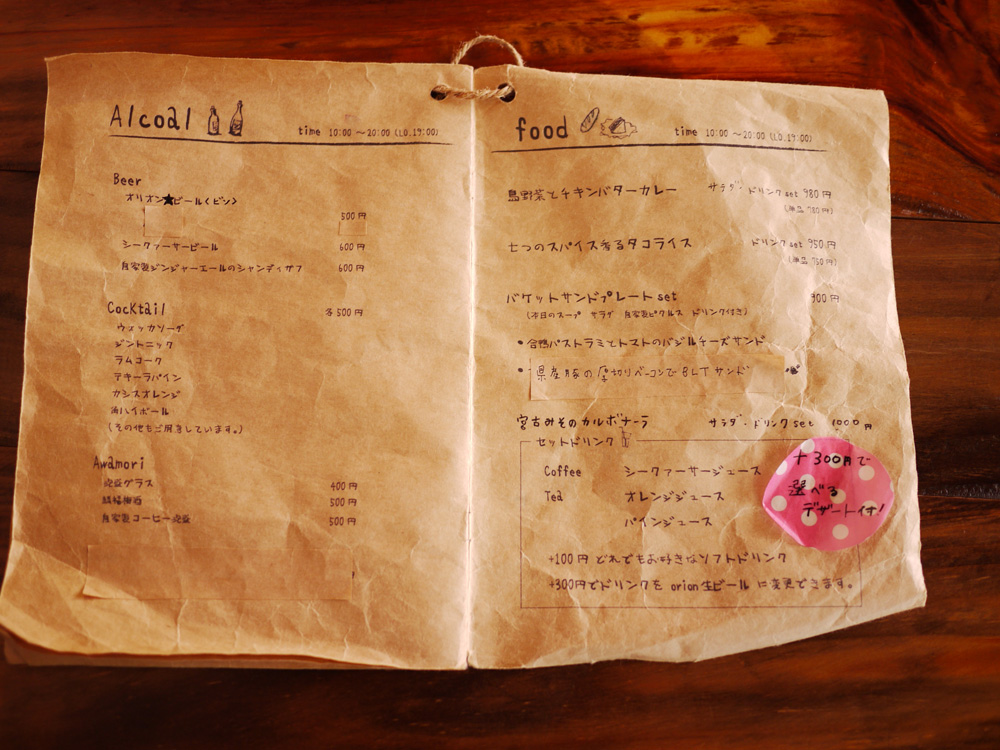 Alcoal
time 10:00 ～20:00 (LO.19:00)
Beer
オリオン★ビール<ビン>
500円
シークァーサービール 600円
自家製ジンジャーエールのシャンディガフ 600円
Cocktail 各500円
ウォッカソーダ
ジントニック
ラムコーク
テキーラパイン
カシスオレンジ
角ハイボール
(その他もご用意しています。)
Awamori
泡盛グラス 400円
500円
自家製コーヒー泡盛 500円
food
time 10:00 ～20:00 (LO.19:00)
島野菜とチキンバターカレー サラダ・ドリンクset 980円
(単品 780円)
七つのスパイス香るタコライス ドリンクset 950円
(単品 750円)
バケットサンドプレートset 900円
(本日のスープ サラダ 自家製ピクルス ドリンク付き)
•合鴨パストラミとトマトのバジルチーズサンド
•県産豚の厚切りベーコンでBLTサンド
宮古みそのカルボナーラ サラダ・ドリンクset 1000円
セットドリンク
Coffee シークァーサージュース
Tea オレンジジュース
パインジュース
+100円 どれでもお好きなソフトドリンク
+300円でドリンクを orion生ビール に変更できます。
+300円で
選べる
デザート付!